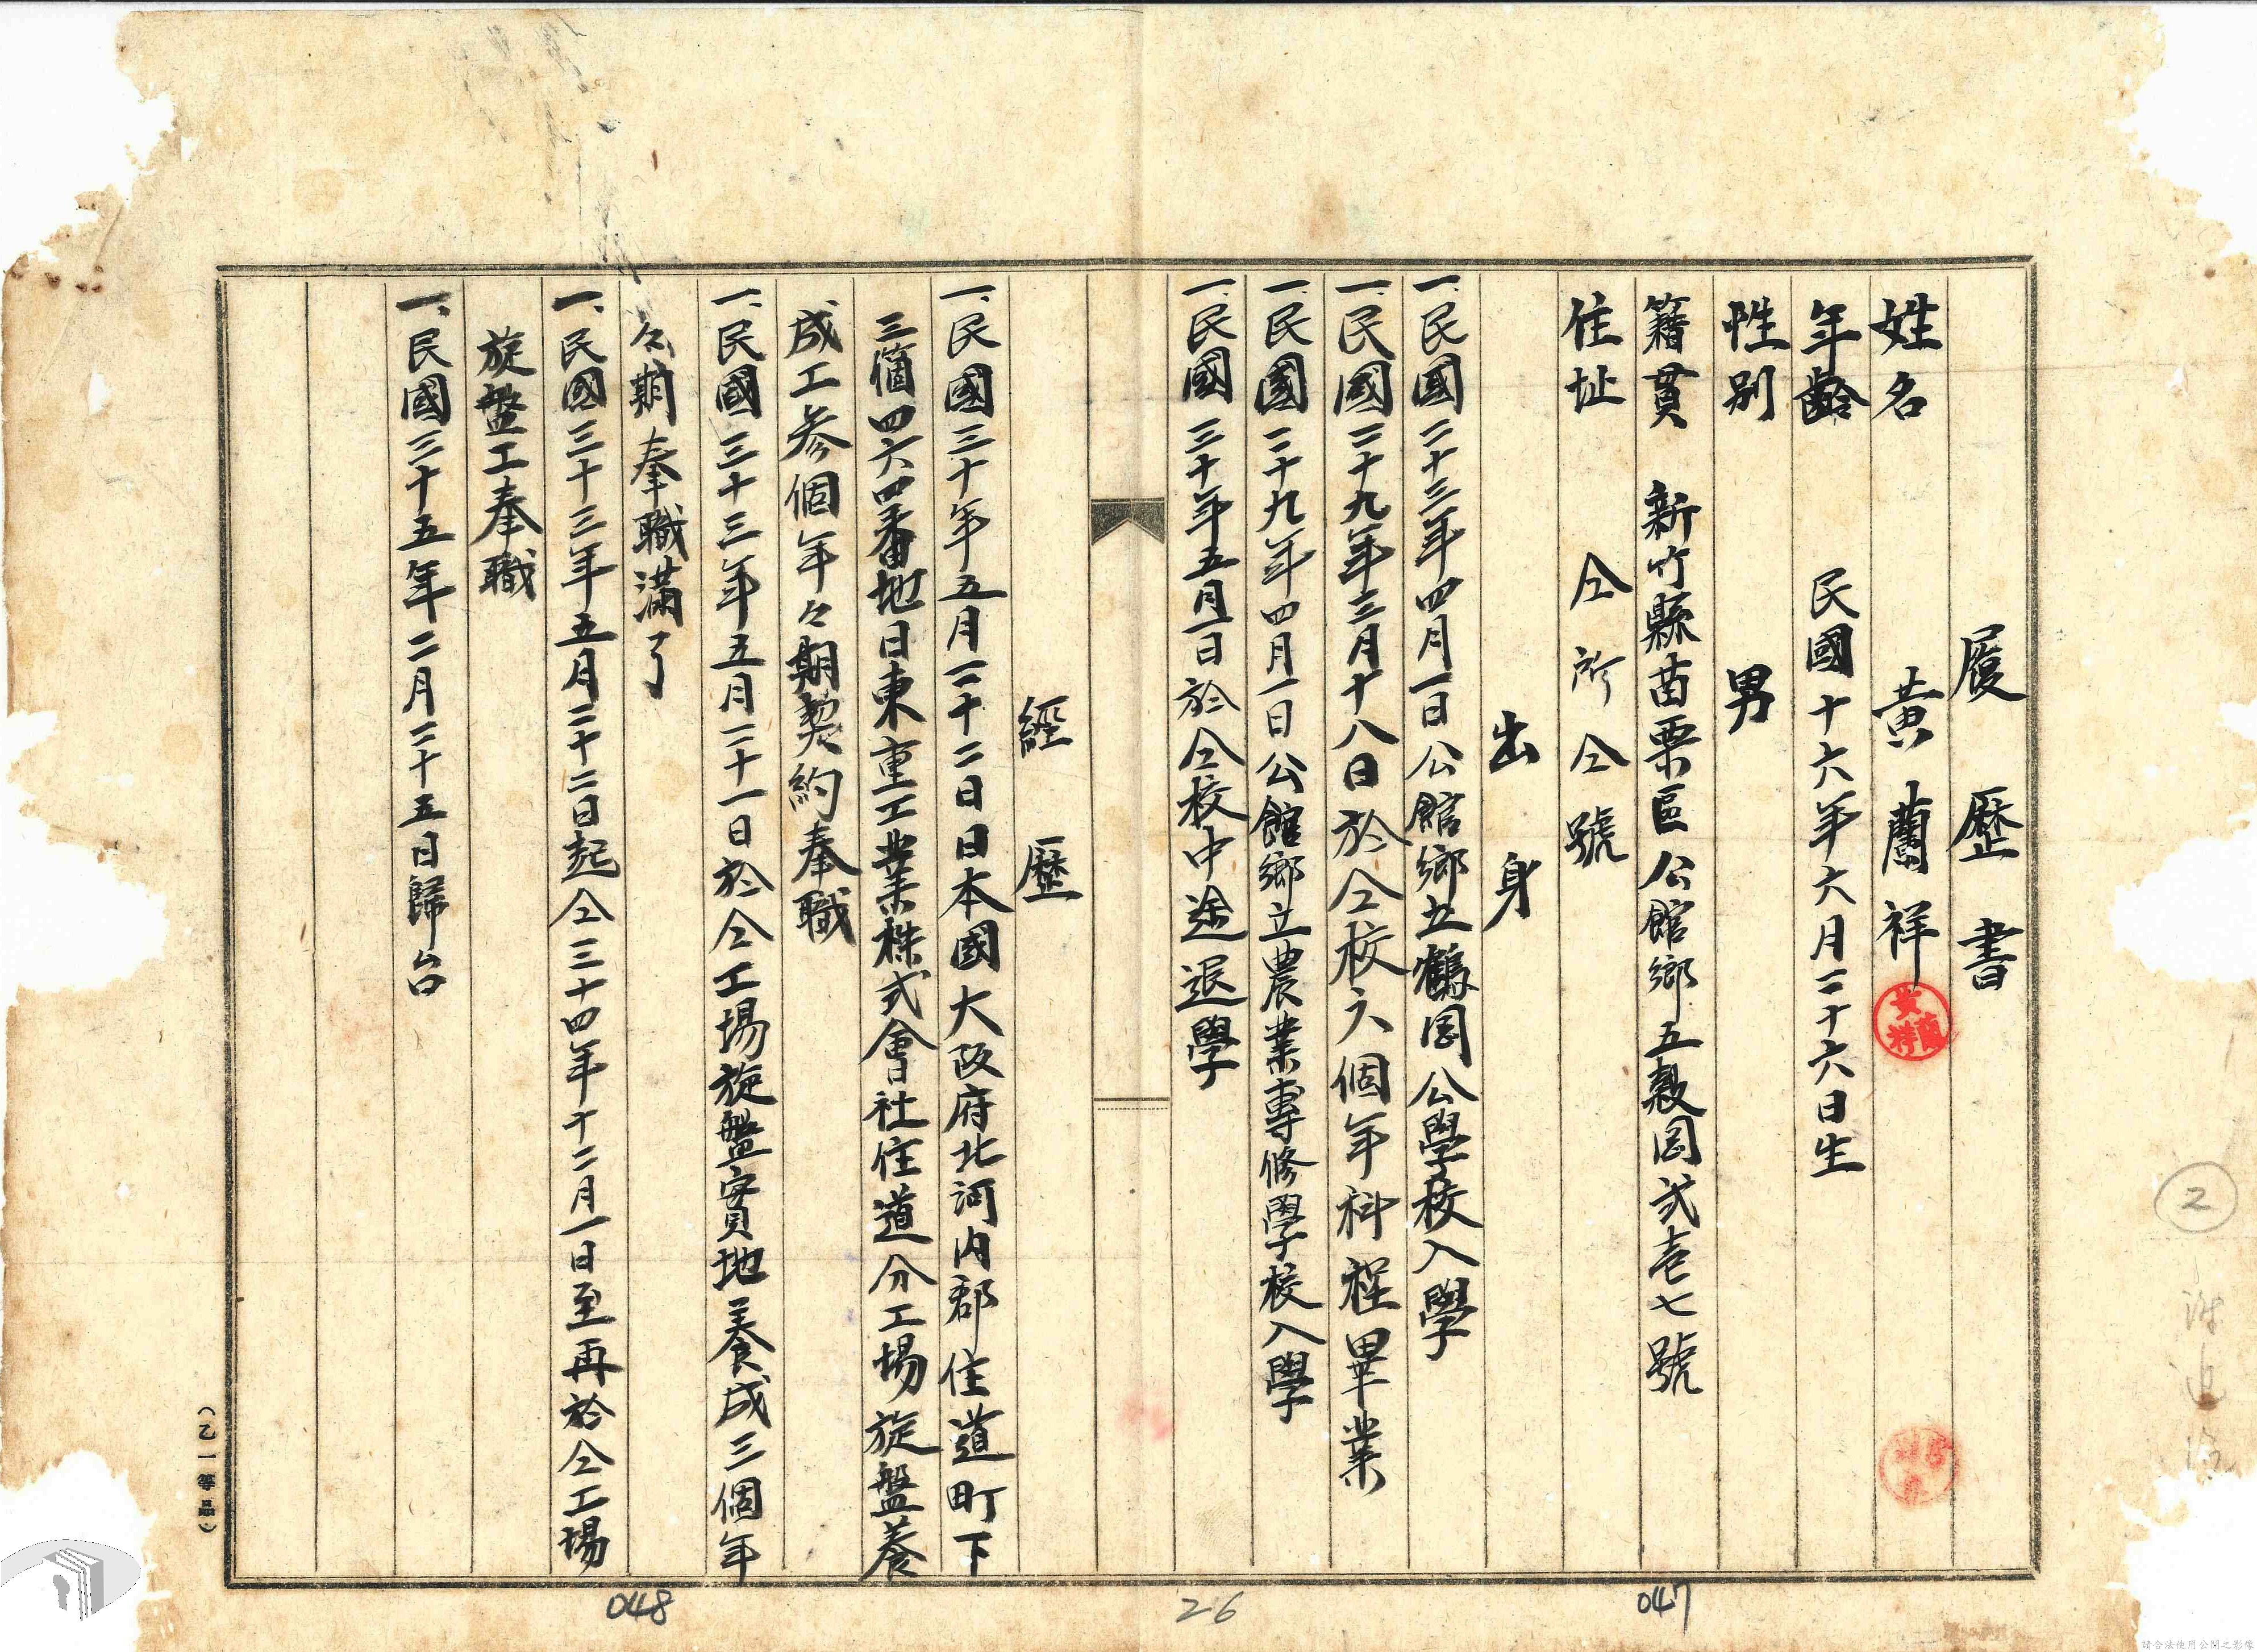 履歷書
姓名 黃蘭祥
年齡 民國十六年六月二十六日生
性別 男
籍貫 新竹縣苗栗區公館鄉五穀岡弍壱七號
住址 仝所仝號
出身
一、民國二十三年四月一日公館鄉立鶴岡公學校入學
一、民國二十九年三月十八日於仝校六個年科程畢業
一、民國二十九年四月一日公館鄉立農業專修學校入學
一、民國三十年五月一日於仝校中途退學
經歷
一、民國三十年五月二十二日日本國大阪府北河內郡住道町下
三箇四六四番地日東重工業株式會社住道分工場旋盤養
成工参個年々期契約奉職
一、民國三十三年五月二十一日於仝工場旋盤實地養成三個年
々期奉職滿了
一、民國三十三年五月二十二日起仝三十四年十二月一日至再於仝工場
旋盤工奉職
一、民國三十五年二月二十五日歸台
(乙一等品)
2
047
26
048
請合法使用公開之影像